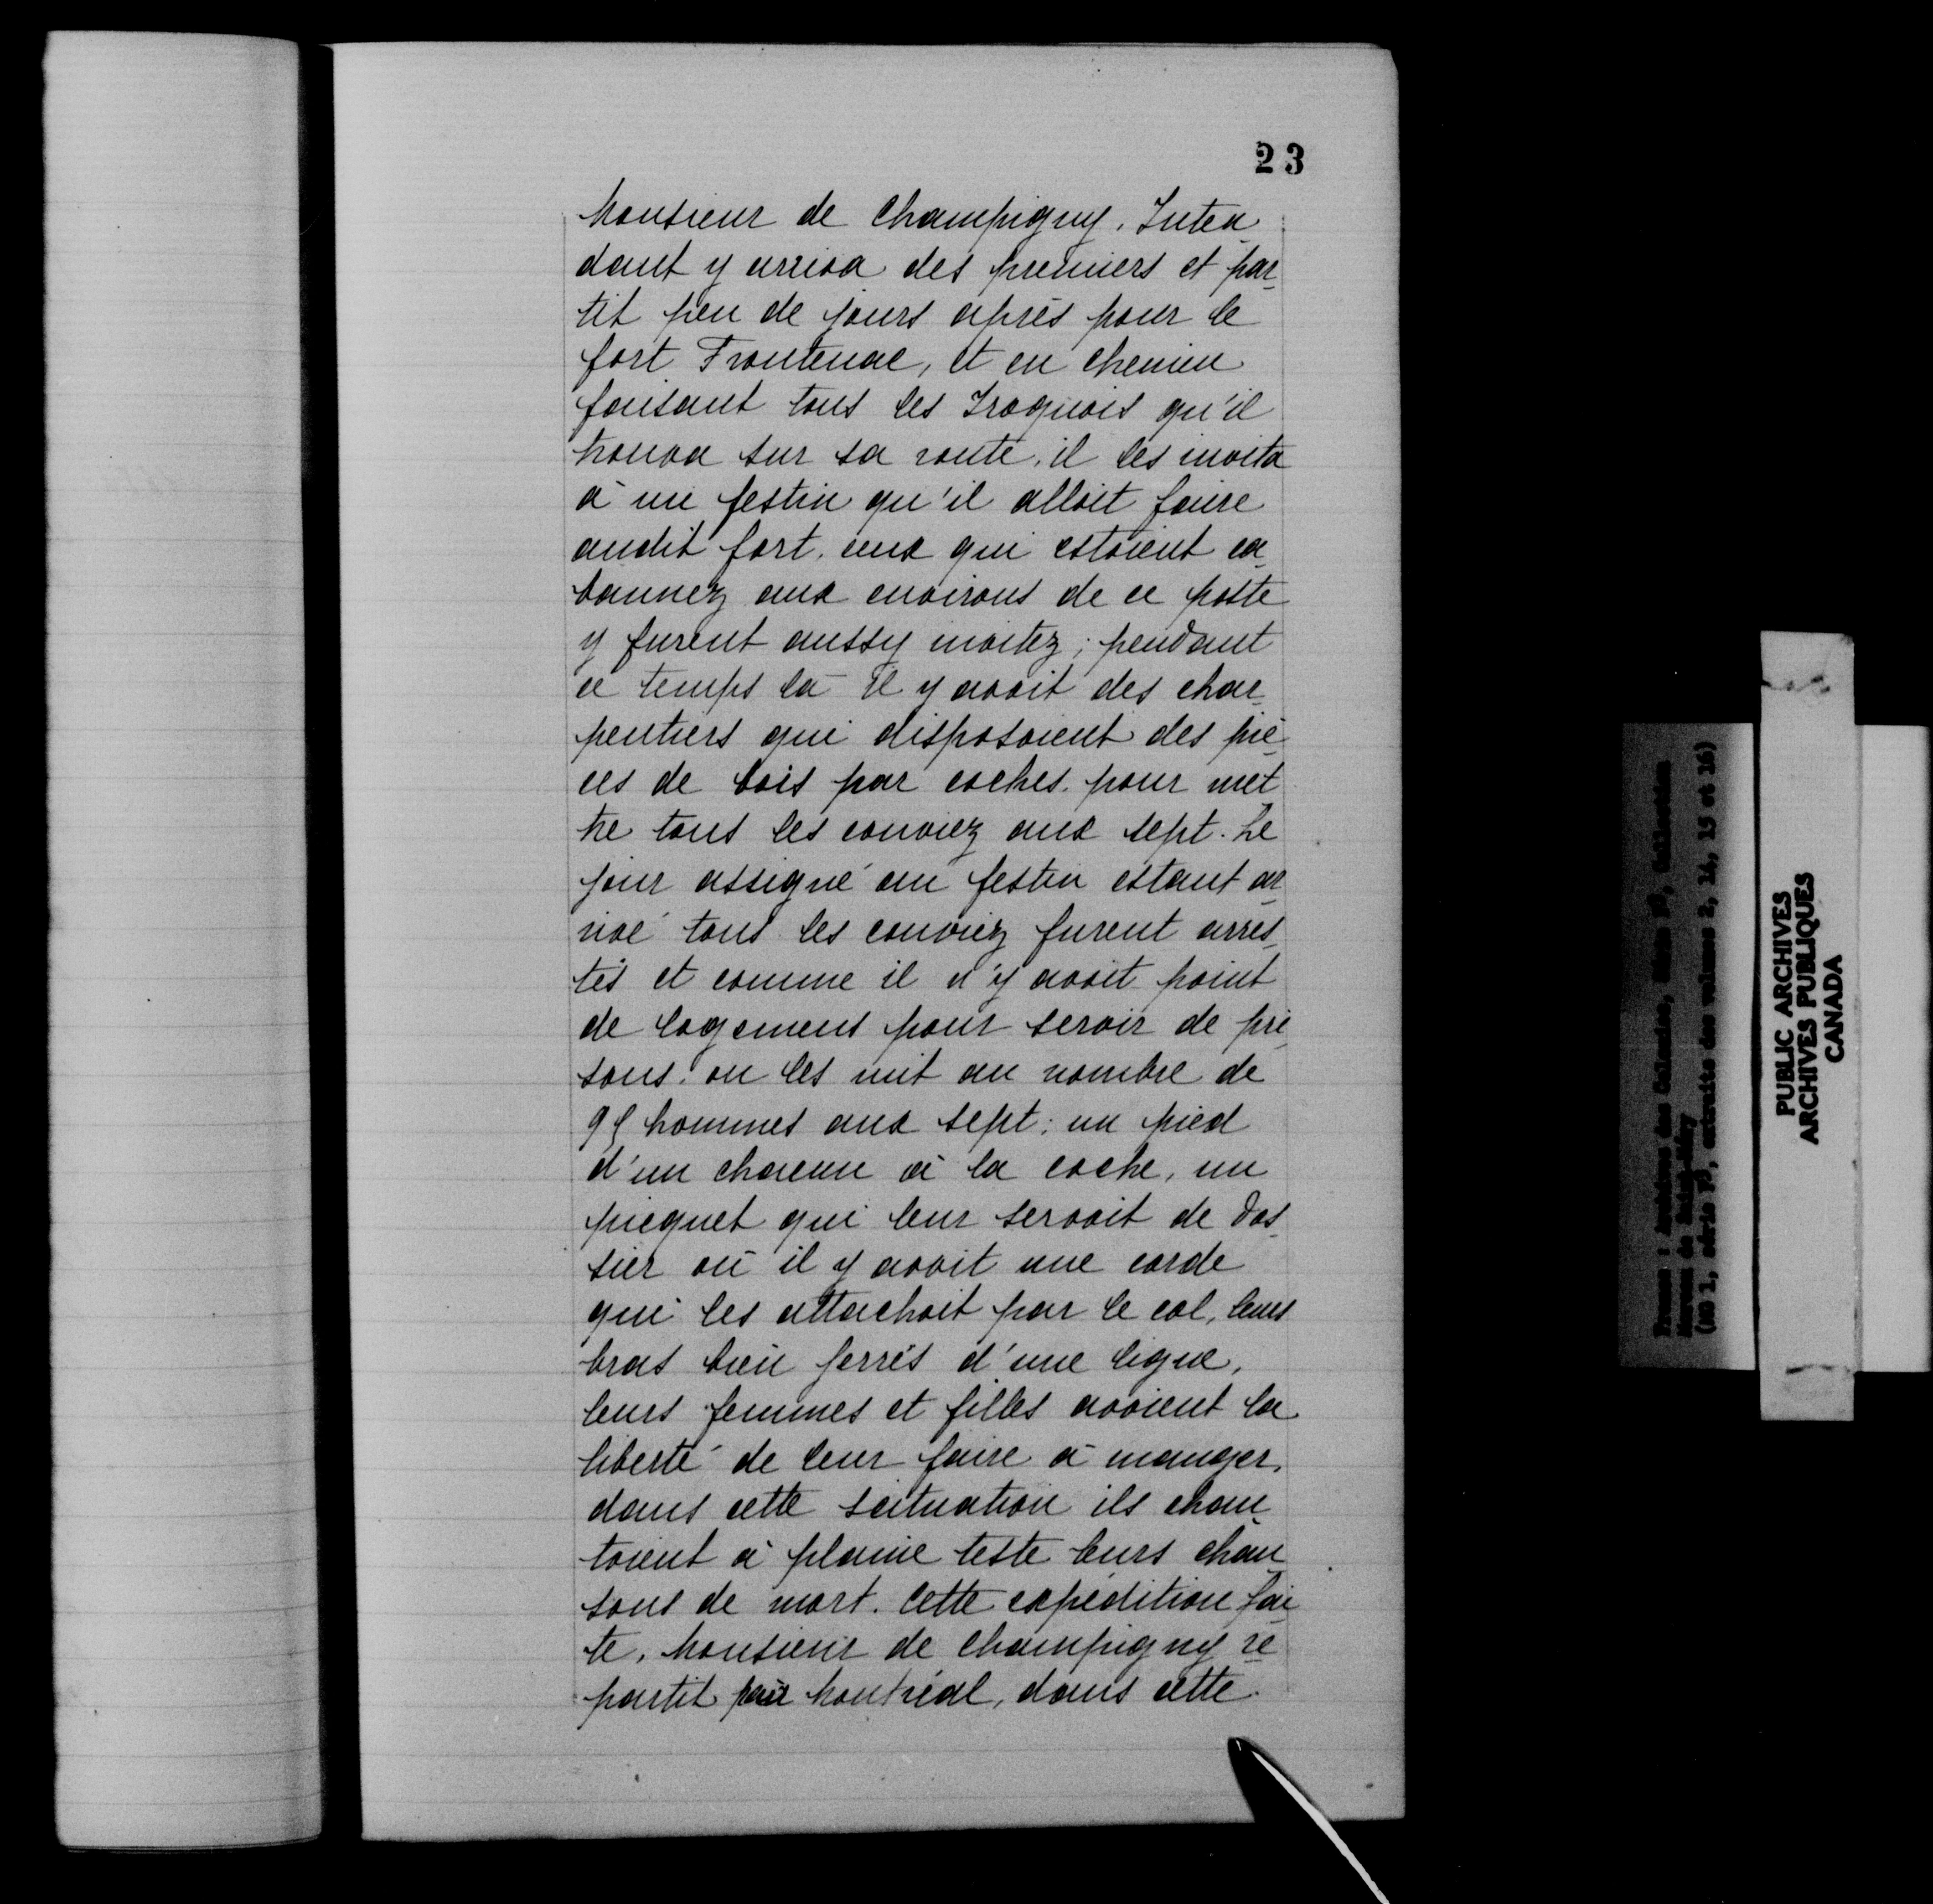 23
Monsieur de Champigny, Inten
dant y arriva des premiers et par-
tit peu de jours après pour le
fort Frontenac, et en chemin
faisant tous les Iroquois qu'il
trouva sur sa route, il les invita
à un festin qu'il alloit faire
audit fort, ceux qui estoient ca-
bannez aux environs de ce poste
y furent aussy invitez; pendant
ce temps là il y avoit des char-
pentiers qui disposoient des piè-
ces de bois par coches pour met
tre tous les conviez aux sept. Le
jour assigné au festin estant ar-
rivé tous les conviez furent arres-
tés et comme il n'y avoit point
de logement pour servir de pri-
sons, on les mit au nombre de
95 hommes aux sept; un pied
d'un chacun à la coche, un
piequet qui leur servoit de dos-
sier où il y avoit une corde
qui les attachoit par le col, leurs
bras bien serrés d'une ligne,
leurs femmes et filles avoient la
liberté de leur faire à manger,
dans cette scituation ils chan-
toient à plaine teste leurs chan
sons de mort. Cette expédition fai-
te, Monsieur de Champigny re-
partit pour Montréal, dans cette
France : Archives des Colonies, Collection
Moreau de Saint-Méry
(no 1, série F3, extraits des volumes 2, 14, 15 et 16)
PUBLIC ARCHIVES
ARCHIVES PUBLIQUES
CANADA